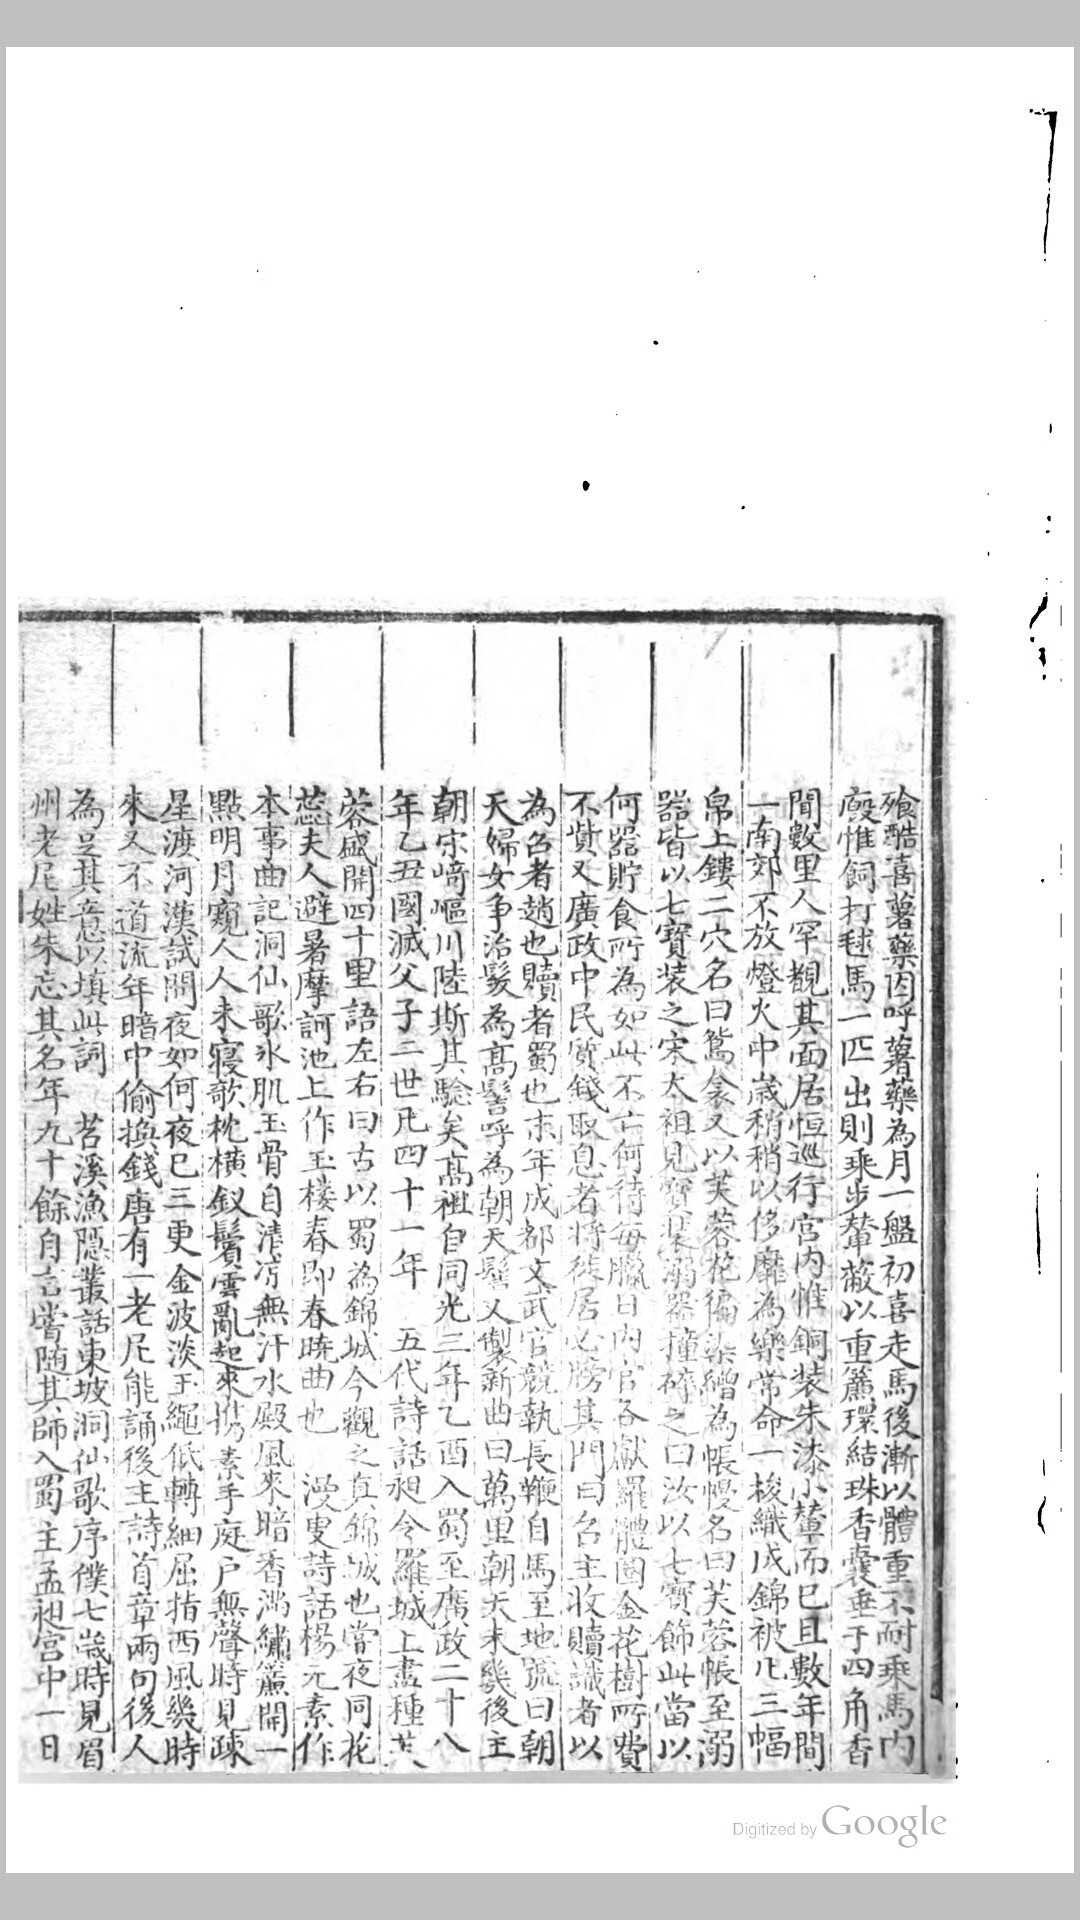 飱酷喜薯藥因呼薯藥為月一盤初喜走馬後漸以體重不耐乘馬内
廐惟飼打毬馬一匹出則乘步輦蔽以重簾環結珠香囊垂于四角香
聞數里人罕覩其面居恒巡行宫内惟銅装朱漆小輦而已且數年間
一南郊不放燈火中歳稍稍以侈靡為樂常命一梭織成錦被凡三幅
帛上鏤二穴名曰鴛衾又以芙蓉花徧染繒為帳幔名曰芙蓉帳至溺
器皆以七寶装之宋太祖見寶装溺器撞碎之曰汝以七寶飾此當以
何器貯食所為如此不亡何待每臘日内官各獻羅體圈金花樹所費
不貲又廣政中民質錢取息者將徙居必牓其門曰召主收贖識者以
為召者趙也贖者蜀也末年成都文武官競執長鞭自馬至地號曰朝
天婦女争治髪為髙髻呼為朝天髻又製新曲曰萬里朝天未幾後主
朝宋﨑嶇川陸斯其騐矣髙祖自同光三年乙酉入蜀至廣政二十八
年乙丑國滅父子二世凡四十一年　五代詩話昶令羅城上盡種芙
蓉盛開四十里語左右曰古以蜀為錦城今觀之真錦城也嘗夜同花
蕊夫人避暑摩訶池上作玉樓春即春曉曲也　漫叟詩話楊元素作
本事曲記洞仙歌氷肌玉骨自清凉無汗水殿風來暗香滿繡簾開一
點明月窺人人未寢欹枕横釵鬢雲亂起來携素手庭户無聲時見疎
星渡河漢試問夜如何夜已三更金波淡玉繩低轉細屈指西風幾時
來又不道流年暗中偷換錢唐有一老尼能誦後主詩首章兩句後人
為足其意以填此詞　苕溪漁隱叢話東坡洞仙歌序僕七歳時見眉
州老尼姓朱忘其名年九十餘自言嘗随其師入蜀主孟昶宫中一日
Digitized by Google